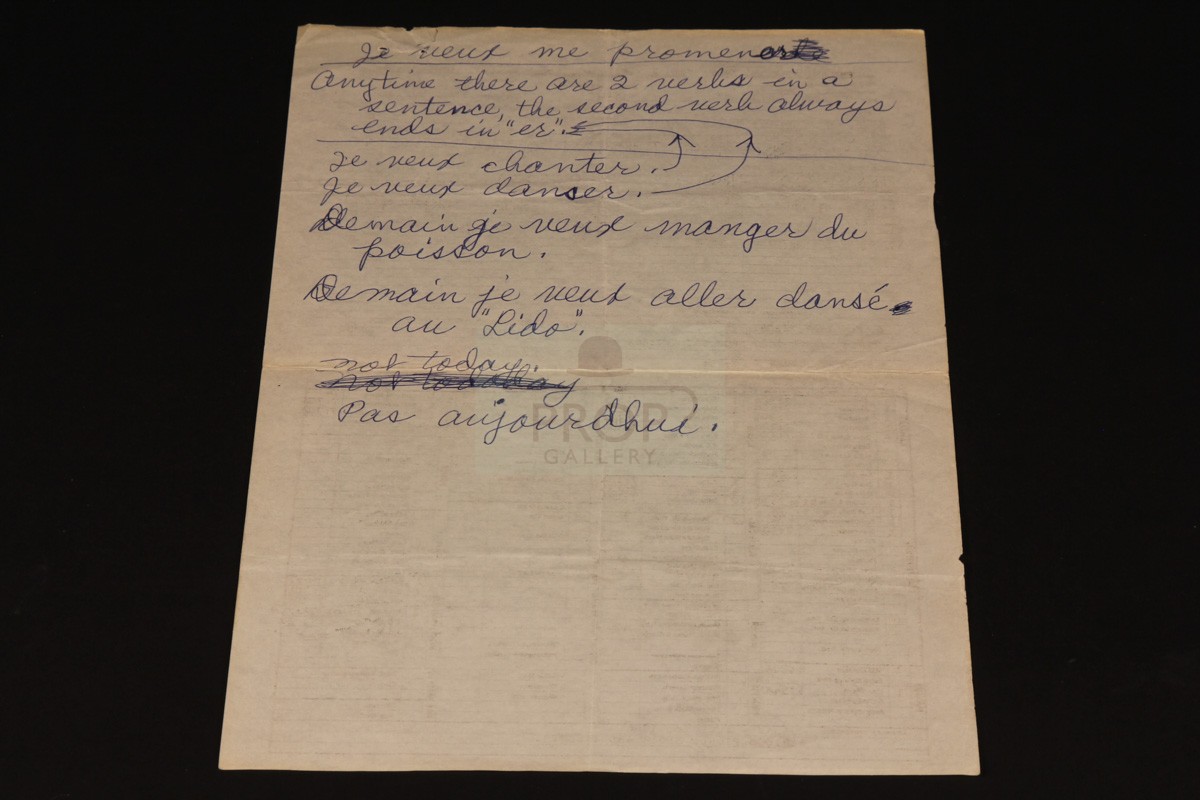 Je veux me promener
Anytime there are 2 verbs in a
sentence, the second verb always
ends in "er".
Je veux chanter.
Je veux danser.
Demain je veux manger du
poisson.
Demain je veux aller dansé.
au "Lido".
not today.
not today
Pas aujourdhui.
PROP
GALLERY